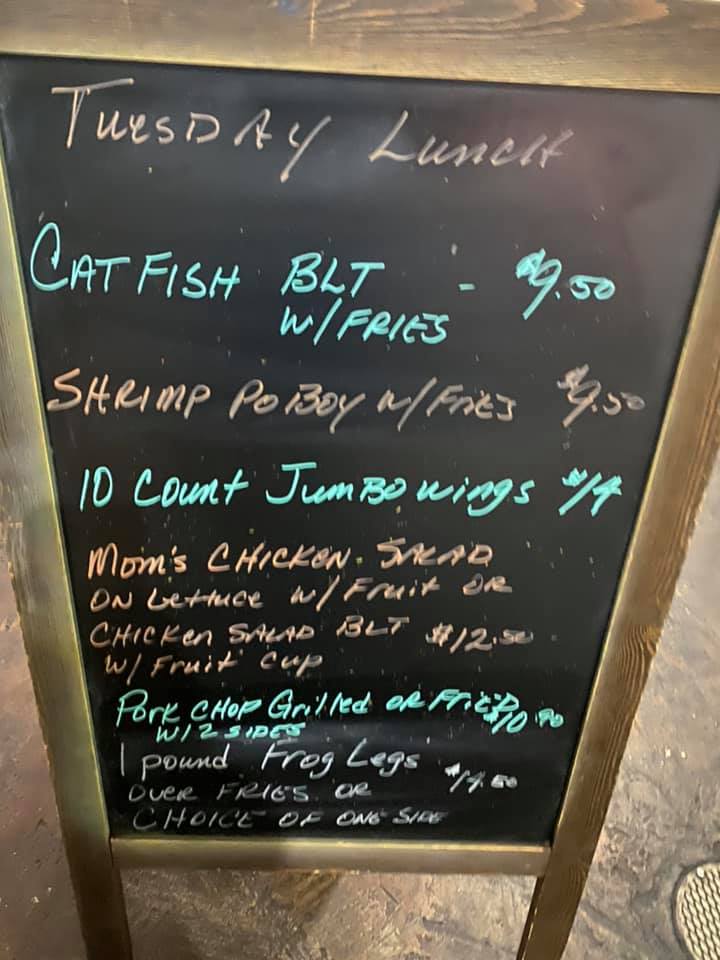 TUESDAY LUNCH
CATFISH BLT - $9.50
W/FRIES
SHRIMP PO BOY W/FRIES $9.50
10 COUNT JUMBO WINGS $14
MOM'S CHICKEN SALAD
ON LETTUCE W/ FRUIT OR
CHICKEN SALAD BLT $12.50
W/ FRUIT CUP
PORK CHOP GRILLED OR FRIED
W/2 SIDES
1 POUND FROG LEGS
OVER FRIES OR
CHOICE OF ONE SIDE